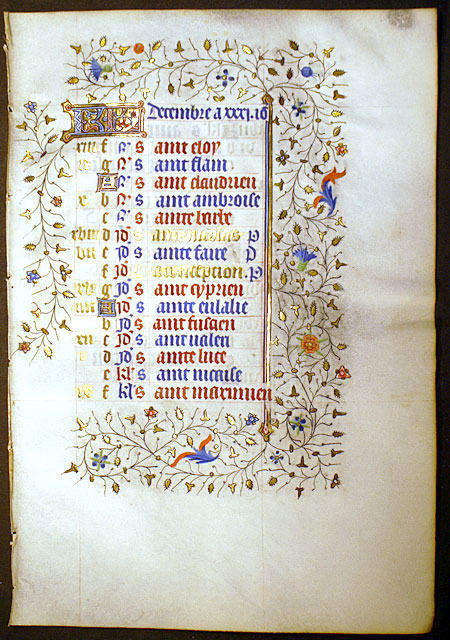 KL Decembre a xxxi. io
xiii f N s aint eloy
g N s aint flain
A N s aint claudrien
x b N s aint ambroise
c N s ainte barbe
xviii d Id s aint nicolas
vii e Id s ainte faire
f Id conception.
g Id s ainte cyprien
A Id s ainte eulalie
b Id s aint fuscien
xii c Id s aint valeri
d Id s ainte luce
e kl' s aint nicaise
f kl' s aint maximien